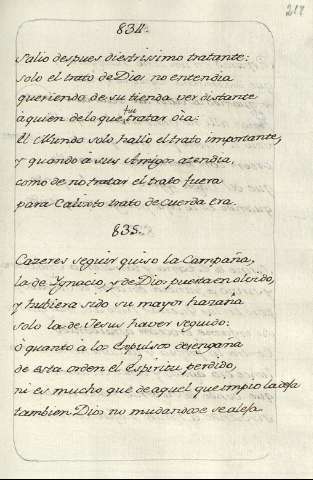 217
834.
Salio despues diestrissimo tratante:
solo el trato de Dios no entendia
queriendo de su tienda ver distante
a quien de lo que, tu tratar dia:
El Mundo solo hallo el trato importante,
y quando à sus Amigos atendia,
como de no tratar el trato fuera
para Calixto trato de cuerda era.
835.
Cazeres seguir quiso la Campaña,
la de Ygnacio, y de Dios puesta en olvido,
y hubiera sido su mayor hazaña
solo la de Jesus haver seguido:
ò quanto à los Expulsos desengaña
de esta orden el Espiritu perdido,
ni es mucho que de aquel que impio la dexa
tambien Dios no mudandose se alexa.